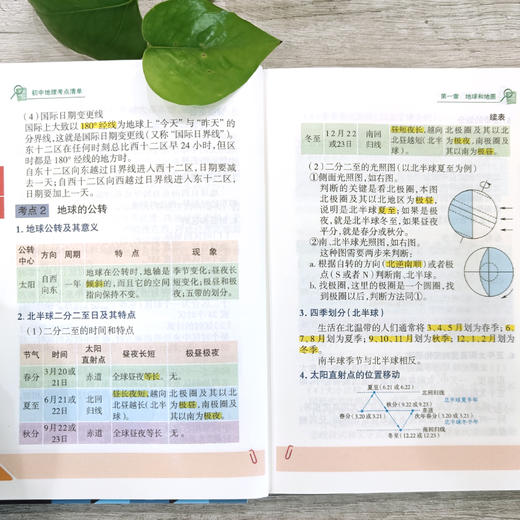 初中地理考点清单
(4)国际日期变更线
国际上大致以180°经线为地球上“今天”与“昨天”的
分界线,这就是国际日期变更线(又称“国际日界线”)。
东十二区在任何时刻总比西十二区早24小时,但区
时都是180°经线的地方时。
自东十二区向东越过日界线进入西十二区,日期要减
去一天;自西十二区向西越过日界线进入东十二区,
日期要加上一天。
考点2 地球的公转
1. 地球公转及其意义
公转中心 方向 周期 特点 现象
太阳 自西向东 一年 地球在公转时,地轴是倾斜的,而且它的空间指向保持不变。 季节变化;昼夜长短变化;极昼和极夜;五带的划分。
2. 北半球二分二至日及其特点
(1)二分二至的时间和特点
节气 时间 太阳直射点 昼夜长短 极昼极夜
春分 3月20或21日 赤道 全球昼夜等长。 无。
夏至 6月21或22日 北回归线 昼长夜短,越向北昼越长(北半球)。 北极圈及其以北为极昼,南极圈及其以南为极夜。
秋分 9月22或23日 赤道 全球昼夜等长。 无。
第一章 地球和地图
续表
冬至 12月22或23日 南回归线 昼短夜长,越向北昼越短(北半球)。 北极圈及其以北为极夜,南极圈及其以南为极昼。
(2)二分二至的光照图(以北半球夏至为例)
①侧面光照图,如右图。
判断的关键是看北极圈,本图
北极圈及其以北地区为极昼,
说明是北半球夏至;如果是极
夜,就是北半球冬至,如果昼夜
平分,就是春分或秋分。
②南、北半球光照图,如右图。
这种图需要两步来判断:
a. 根据自转的方向(北逆南顺)或者极
点(S或者N)判断南、北半球。
b. 找极圈,这里的极圈是一个圆圈,找
到极圈以后,判断方法同①。
3. 四季划分(北半球)
生活在北温带的人们通常将3、4、5月划为春季;6、
7、8月划为夏季;9、10、11月划为秋季;12、1、2月为
冬季。
南半球季节与北半球相反。
4. 太阳直射点的位置移动
夏至(6.21或6.22)
北回归线
北半球夏半年
秋分(9.22或9.23)
赤道
春分(3.20或3.21)
次年春分(3.20或3.21)
北半球冬半年
南回归线
冬至(12.22或12.23)